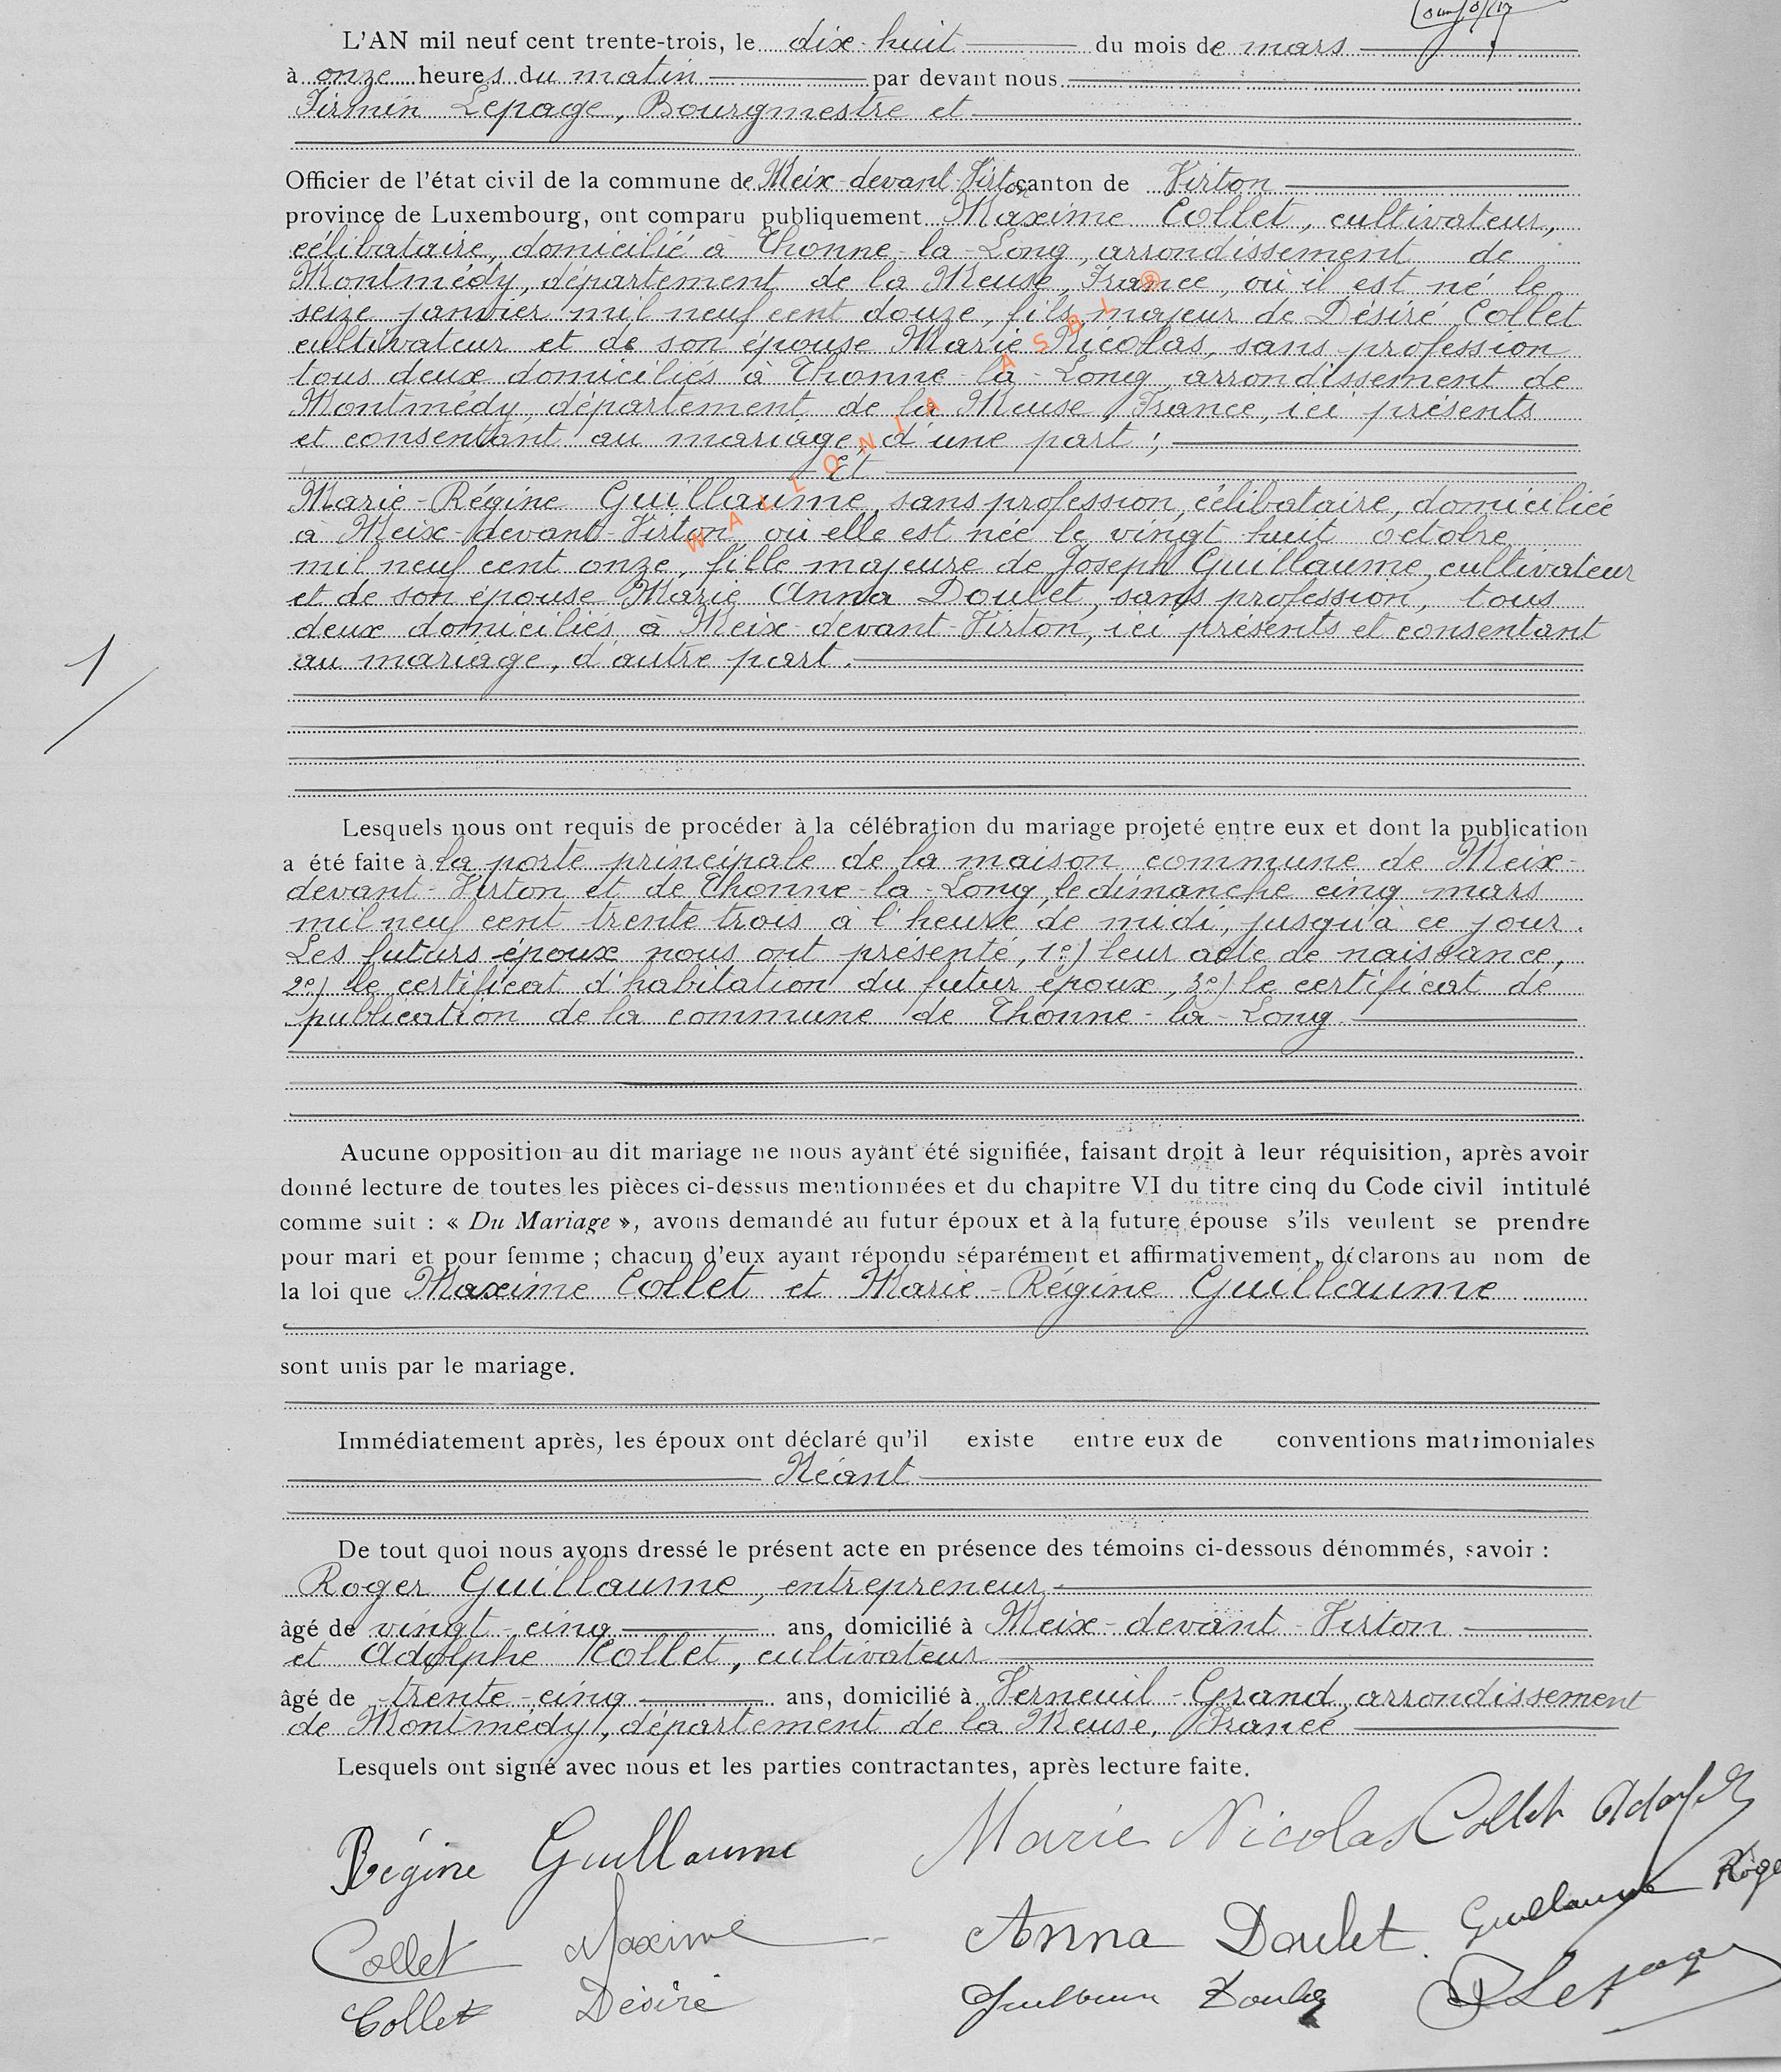 L'AN mil neuf cent trente-trois, le dix-huit du mois de mars
à onze heures du matin par devant nous
Firmin Lepage, Bourgmestre et
Officier de l'état civil de la commune de Meix-devant-Virton canton de Virton
province de Luxembourg, ont comparu publiquement Maxime Collet, cultivateur,
célibataire, domicilié à Thonne-la-Long, arrondissement de
Montmédy, département de la Meuse, France, où il est né le
seize janvier mil neuf cent douze, fils majeur de Désiré Collet
cultivateur et de son épouse Marie Nicolas, sans profession
tous deux domiciliés à Thonne-la-Long, arrondissement de
Montmédy, département de la Meuse, France, ici présents
et consentant au mariage, d'une part ;
Et
Marie-Régine Guillaume, sans profession, célibataire, domiciliée
à Meix-devant-Virton, où elle est née le vingt huit octobre
mil neuf cent onze, fille majeure de Joseph Guillaume, cultivateur
et de son épouse Marie Anna Doulet, sans profession, tous
deux domiciliés à Meix-devant-Virton, ici présents et consentant
au mariage, d'autre part.
1
WALLONIA ASBL ®
Lesquels nous ont requis de procéder à la célébration du mariage projeté entre eux et dont la publication
a été faite à la porte principale de la maison commune de Meix-
devant-Virton et de Thonne-la-Long, le dimanche cinq mars
mil neuf cent trente trois à l'heure de midi, jusqu'à ce jour.
Les futurs époux nous ont présenté, 1e) leur acte de naissance,
2e) le certificat d'habitation du futur époux, 3e) le certificat de
publication de la commune de Thonne-la-Long.
Aucune opposition au dit mariage ne nous ayant été signifiée, faisant droit à leur réquisition, après avoir
donné lecture de toutes les pièces ci-dessus mentionnées et du chapitre VI du titre cinq du Code civil intitulé
comme suit : « Du Mariage », avons demandé au futur époux et à la future épouse s'ils veulent se prendre
pour mari et pour femme ; chacun d'eux ayant répondu séparément et affirmativement, déclarons au nom de
la loi que Maxime Collet et Marie-Régine Guillaume
sont unis par le mariage.
Immédiatement après, les époux ont déclaré qu'il existe entre eux de conventions matrimoniales
Néant
De tout quoi nous avons dressé le présent acte en présence des témoins ci-dessous dénommés, savoir :
Roger Guillaume, entrepreneur
âgé de vingt-cinq ans, domicilié à Meix-devant-Virton
et Adolphe Collet, cultivateur
âgé de trente-cinq ans, domicilié à Verneuil-Grand, arrondissement
de Montmédy, département de la Meuse, France
Lesquels ont signé avec nous et les parties contractantes, après lecture faite.
Régine Guillaume Marie Nicolas Collet
Collet Maxime Anna Doulet. Guillaume
Collet Désiré Lepage